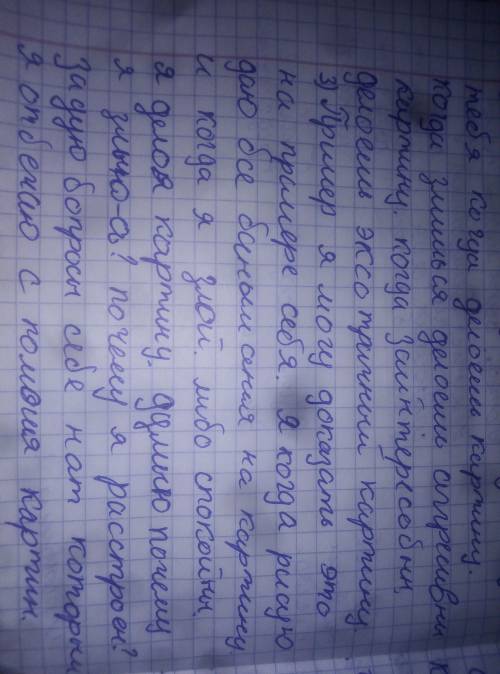 тебя когда делоешь картину.
когда злишься делоешь огрешивни
картину. когда заинтересовни,
делоешь эксо тричний картину.
3) Пример я могу доказать это
на примере себя. Я когда рисую
даю все вниман ания на картину
и когда я злой. либо спокойни,
я делоя картину. думаю почему
я злью-сь? почему я расстроен?
Задую вопросы себе нат которы
Я отвечаю с помощя картин.